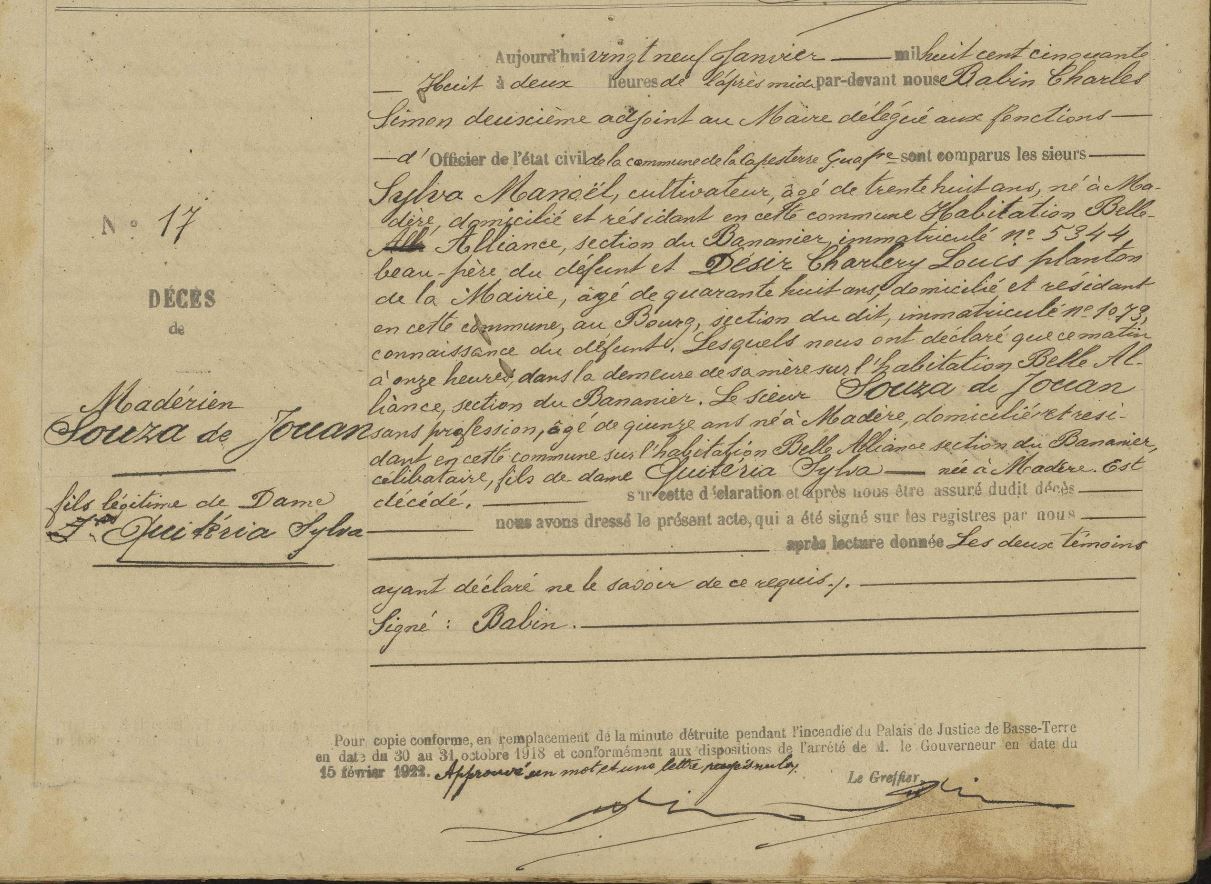 Aujourd'hui vingt neuf Janvier mil huit cent cinquante
Huit à deux heures de l'après midi par-devant nous Babin Charles
Simon deuxième adjoint au Maire délégué aux fonctions
d'Officier de l'état civil de la commune de la Capesterre Guapre sont comparus les sieurs
Sylva Manoël, cultivateur, âgé de trente huit ans, né à Ma-
dère, domicilié et résidant en cette commune Habitation Belle-
Alliance, section du Bananier, immatriculé no 5344
beau-père du défunt et Désir Charlery Louis planton
de la Mairie, âgé de quarante huit ans, domicilié et résidant
en cette commune, au Bourg, section du dit, immatriculé no 1073,
connaissance du défunt. Lesquels nous ont déclaré que ce matin
à onze heures, dans la demeure de sa mère sur l'habitation Belle Al-
liance, section du Bananier. Le sieur Souza de Jouan
sans profession, âgé de quinze ans né à Madère, domicilié et rési-
dant en cette commune sur l'habitation Belle Alliance section du Bananier,
célibataire, fils de dame Quitéria Sylva née à Madère. Est
décédé. sur cette déclaration et après nous être assuré dudit décès
nous avons dressé le présent acte, qui a été signé sur les registres par nous
après lecture donnée Les deux témoins
ayant déclaré ne le savoir de ce requis./.
Signé : Babin.
No 17
DÉCÈS
de
Madérien
Souza de Jouan
fils légitime de Dame
Quitéria Sylva
Pour copie conforme, en remplacement de la minute détruite pendant l'incendie du Palais de Justice de Basse-Terre
en date du 30 au 31 octobre 1918 et conformément aux dispositions de l'arrêté de M. le Gouverneur en date du
15 février 1922. Approuvé un mot et une lettre rayés nuls.
Le Greffier,